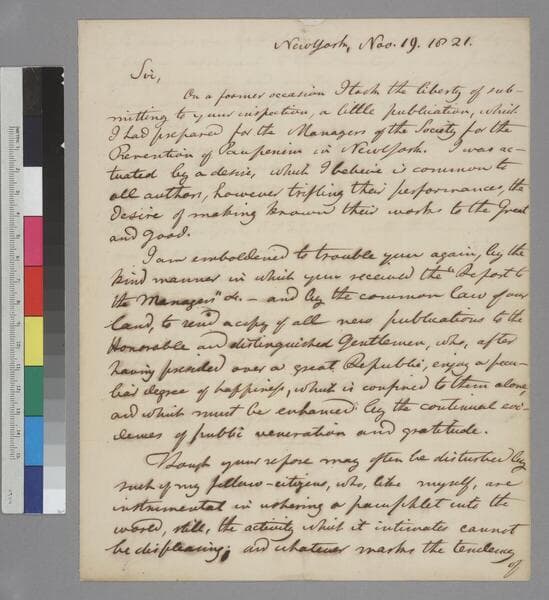 New York, Nov. 19. 1821.
Sir,
On a former occasion I took the liberty of sub-
mitting to your inspection, a little publication, which
I had prepared for the Managers of the Society for the
Prevention of Pauperism in New York. I was ac-
tuated by a desire, which I believe is common to
all authors, however trifling their performances, the
desire of making known their works to the Great
and good.
I am emboldened to trouble your again, by the
kind manner in which your received the "Report to
the Managers" &c. — and by the common law of our
land, to send a copy of all new publications to the
Honorable and distinguished Gentlemen, who, after
having presided over a great Republic, enjoy a pecu-
liar degree of happiness, which is confined to them alone,
and which must be enhanced by the continual evi-
dences of public veneration and gratitude.
Though your repose may often be disturbed by
such of my fellow-citizens, who, like myself, are
instrumental in ushering a pamphlet into the
world, still, the activity which it intimates cannot
be displeasing; and whatever marks the tendency
of